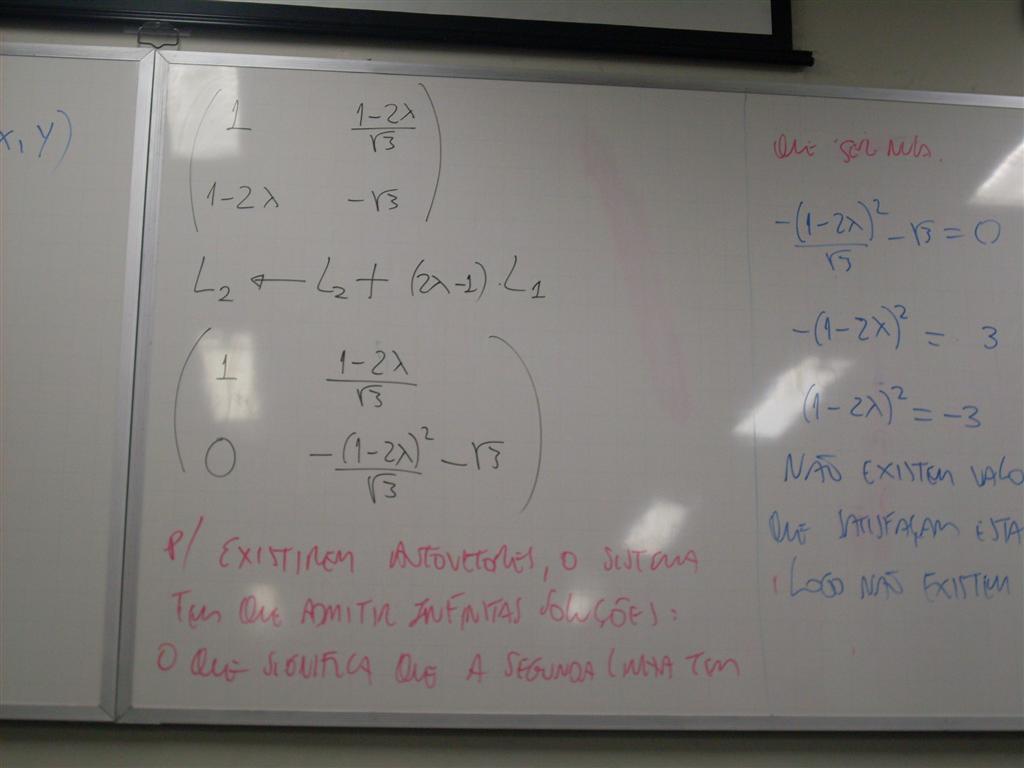 x, y)
1 (1-2λ)/√3
1-2λ -√3
L₂ ← L₂ + (2λ-1)·L₁
1 (1-2λ)/√3
0 -(1-2λ)²/√3 - √3
P/ EXISTIREM AUTOVETORES, O SISTEMA
TEM QUE ADMITIR INFINITAS SOLUÇÕES:
O QUE SIGNIFICA QUE A SEGUNDA LINHA TEM
QUE SER NULA.
-(1-2λ)²/√3 - √3 = 0
-(1-2λ)² = 3
(1-2λ)² = -3
NÃO EXISTEM VALO
QUE SATISFAÇAM ESTA
LOGO NÃO EXISTEM